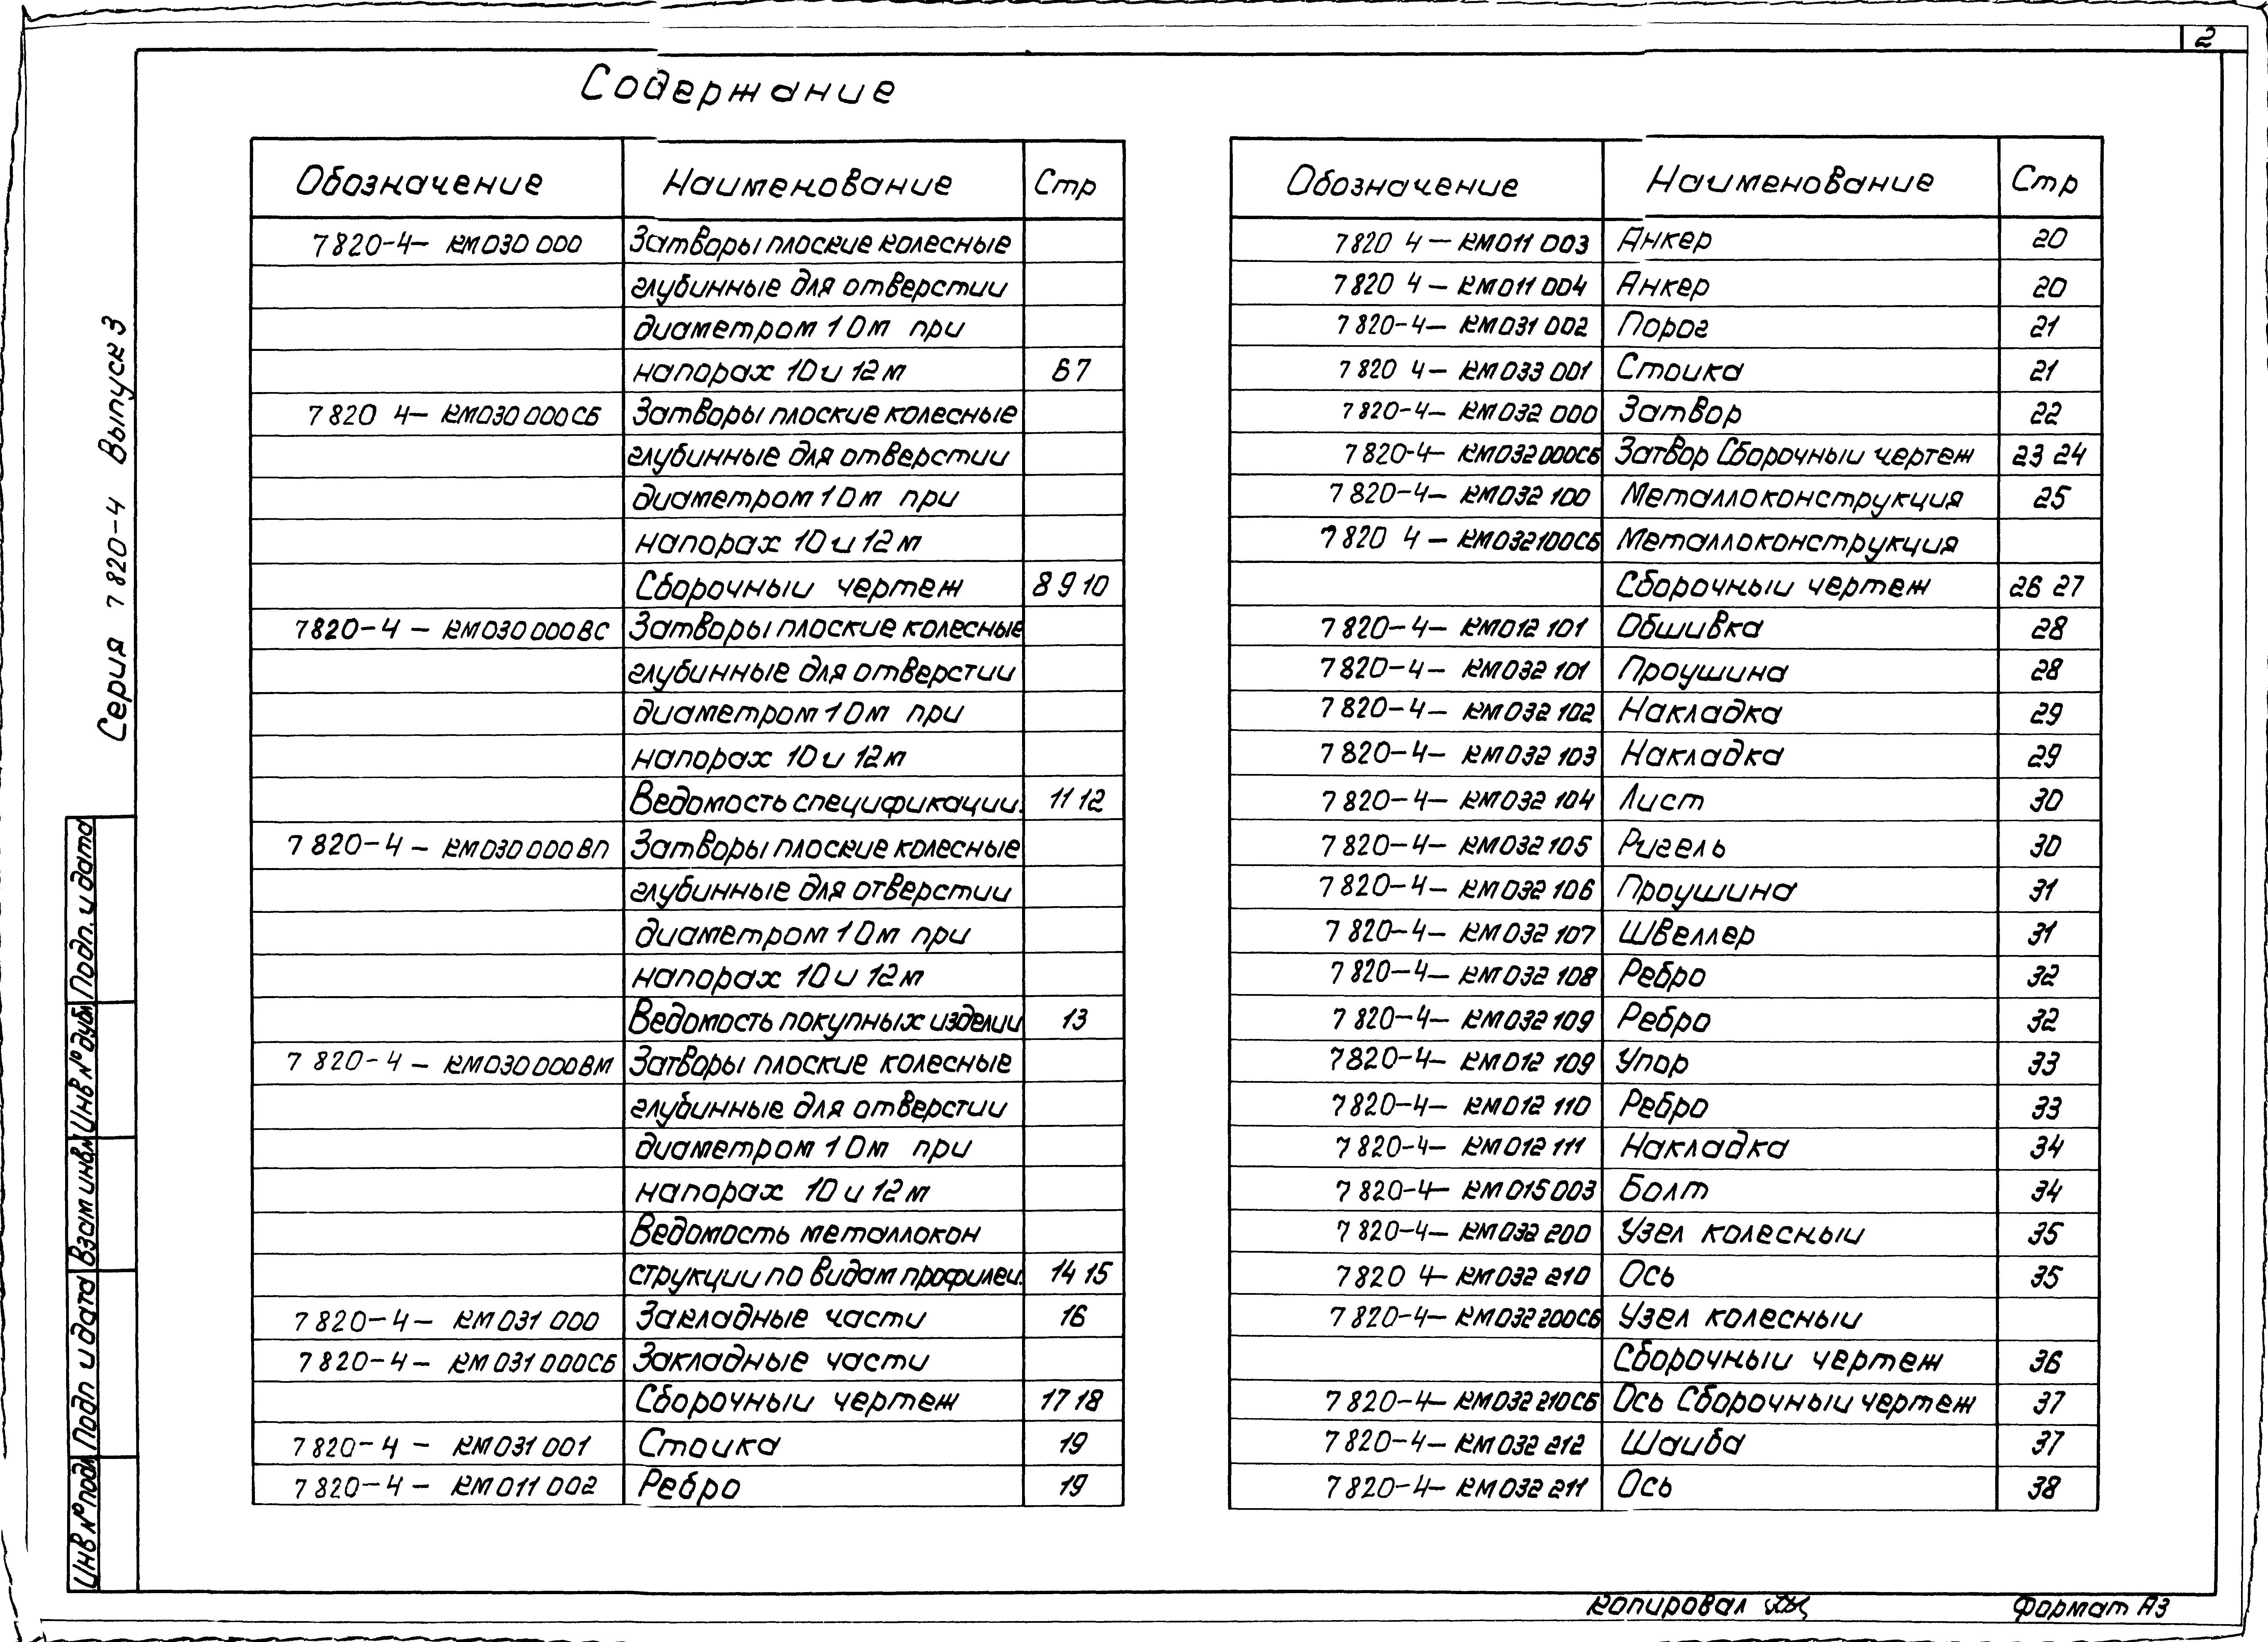 2
Содержание
Обозначение Наименование Стр
7 820-4- КМ030 000 Затворы плоские колесные
глубинные для отверстии
диаметром 1 0м при
напорах 10 и 12м 6 7
7 820 4- КМ030 000СБ Затворы плоские колесные
глубинные для отверстии
диаметром 1 0м при
напорах 10 и 12м
Сборочныи чертеж 8 9 10
7820-4 - КМ030 000ВС Затворы плоские колесные
глубинные для отверстии
диаметром 1 0м при
напорах 10 и 12м
Ведомость спецификации. 11 12
7 820-4 - КМ030 000ВП Затворы плоские колесные
глубинные для отверстии
диаметром 1 0м при
напорах 10 и 12м
Ведомость покупных изделии 13
7 820-4 - КМ030 000ВМ Затворы плоские колесные
глубинные для отверстии
диаметром 1 0м при
напорах 10 и 12м
Ведомость металлокон
струкции по видам профилеи. 14 15
7 820-4- КМ031 000 Закладные части 16
7 820-4- КМ031 000СБ Закладные части
Сборочныи чертеж 17 18
7 820-4 - КМ031 001 Стоика 19
7 820-4- КМ011 002 Ребро 19
Обозначение Наименование Стр
7820 4-КМ011 003 Анкер 20
7820 4-КМ011 004 Анкер 20
7 820-4- КМ031 002 Порог 21
7 820 4- КМ033 001 Стоика 21
7 820-4- КМ032 000 Затвор 22
7 820-4- КМ032 000СБ Затвор Сборочныи чертеж 23 24
7 820-4- КМ032 100 Металлоконструкция 25
7 820 4 - КМ032100СБ Металлоконструкция
Сборочныи чертеж 26 27
7 820-4- КМ012 101 Обшивка 28
7 820-4- КМ032 101 Проушина 28
7 820-4- КМ032 102 Накладка 29
7 820-4- КМ032 103 Накладка 29
7 820-4- КМ032 104 Лист 30
7 820-4- КМ032 105 Ригель 30
7 820-4- КМ032 106 Проушина 31
7 820-4- КМ032 107 Швеллер 31
7 820-4- КМ032 108 Ребро 32
7 820-4- КМ032 109 Ребро 32
7820-4- КМ012 109 Упор 33
7820-4- КМ012 110 Ребро 33
7 820-4- КМ012 111 Накладка 34
7 820-4- КМ015 003 Болт 34
7 820-4- КМ032 200 Узел колесныи 35
7820 4- КМ032 210 Ось 35
7 820-4- КМ032 200СБ Узел колесныи
Сборочныи чертеж 36
7 820-4- КМ032 210СБ Ось Сборочныи чертеж 37
7 820-4- КМ032 212 Шаиба 37
7 820-4- КМ032 211 Ось 38
Серия 7 820-4 Выпуск 3
Подп. и дата
Инв № дубл
Взам инв №
Подп и дата
Инв № подл
Копировал
Формат А3